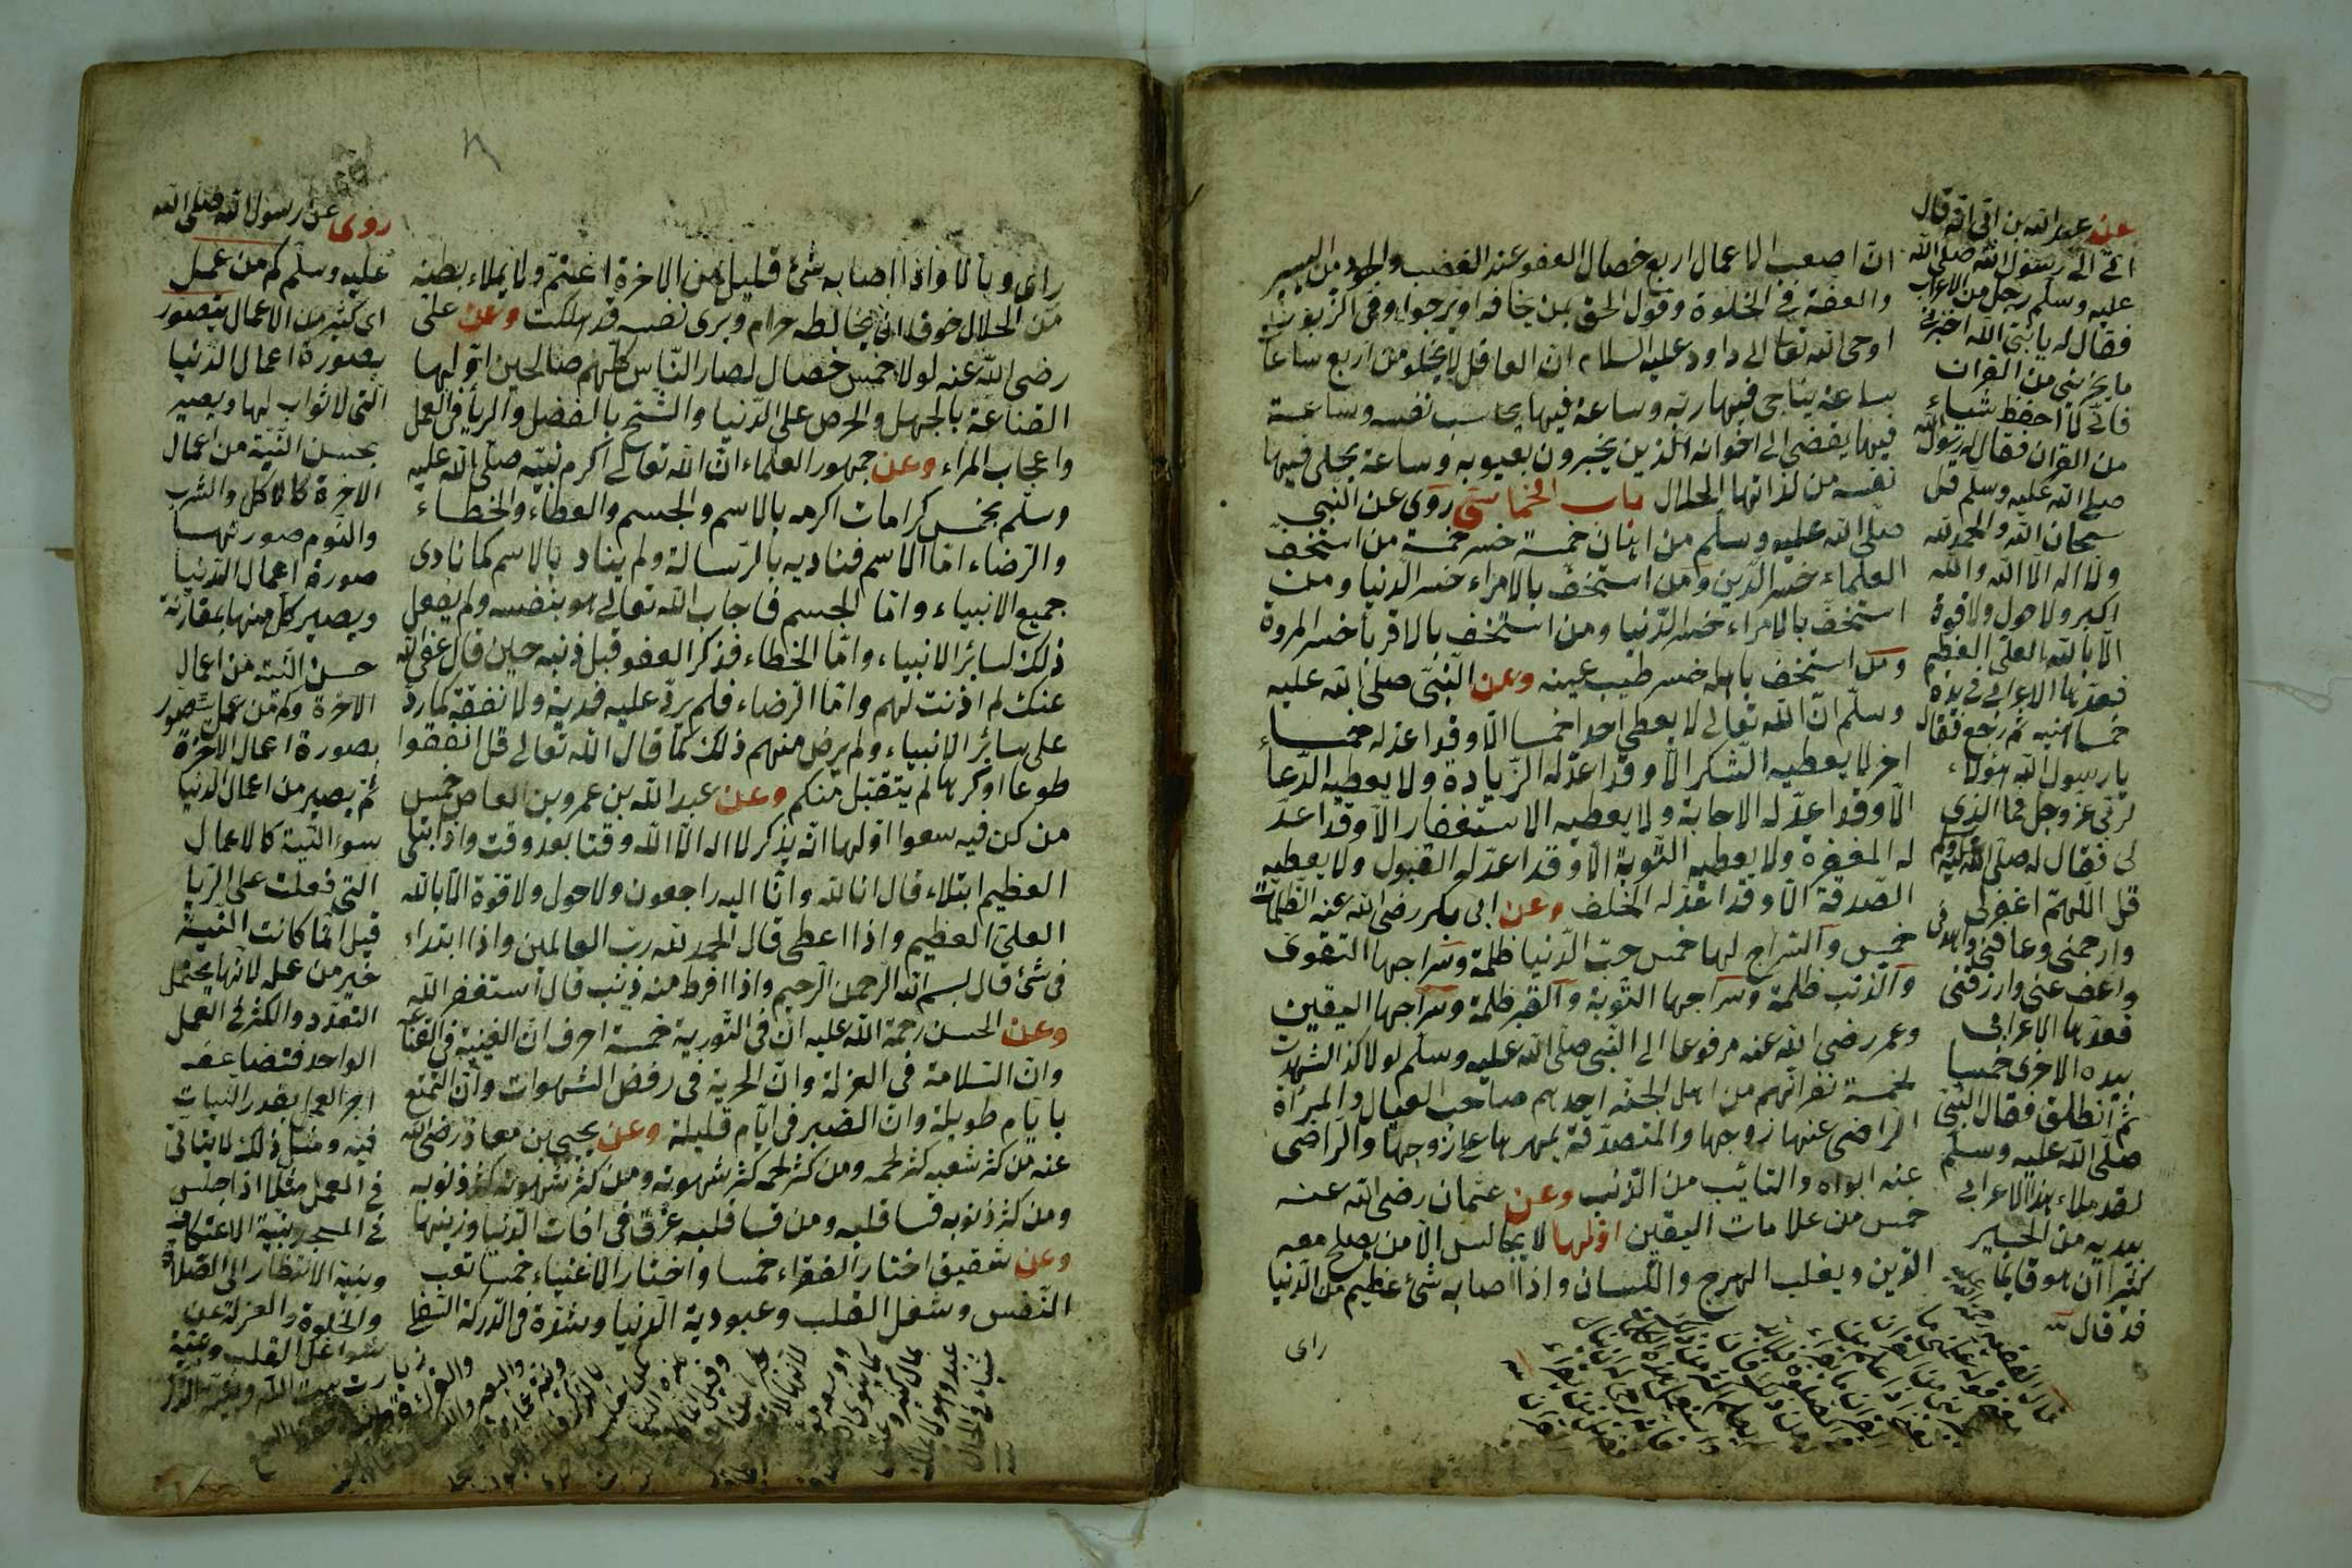 ان اصعب الاعمال اربع خصال العفو عند الغضب والجود من اليسير
والعفة فى الخلوة وقول الحق بمن يخافه او يرجوا وفى الزبور
اوحى الله تعالى داود عليه السلام ان العاقل لا يخلو من اربع ساعات
ساعة يناجى فيها ربه وساعة فيها يحاسب نفسه وساعة
فيها يفضى الى اخوانه الذين يخبرون بعيوبه وساعة يخلى فيها
نفسه من لذاتها الحلال باب الخماسى روى عن النبى
صلى الله عليه وسلم من اهان خمسة خسر خمسة من استخف
العلماء خسر الدين ومن استخف بالامراء خسر الدنيا ومن
استخف بالامراء خسر الدنيا ومن استخف بالاقربأ خسر المروة
ومن استخف باهله خسر طيب عيشه وعن النبى صلى الله عليه
وسلم ان الله تعالى لا يعطى احدا خمسا الا وقد اعد له خمسا
اخر لا يعطيه الشكر الا وقد اعد له الزيادة ولا يعطيه الدعأ
الا وقد اعد له الاجابة ولا يعطيه الاستغفار الا وقد اعد
له المغفرة ولا يعطيه التوبة الا وقد اعد له القبول ولا يعطيه
الصدقة الا وقد اعد له الخلف وعن ابى بكر رضى الله عنه الظلمات
خمس والسراج لها خمس حب الدنيا ظلمة وسراجها التقوى
والذنب ظلمة وسراجها التوبة والقبر ظلمة وسراجها اليقين
وعمر رضى الله عنه مرفوعا الى النبى صلى الله عليه وسلم لولا الشهدت
لخمسة نفر انهم من اهل الجنة احدهم صاحب العيال والمرأة
الراضى عنها زوجها والمتصدقة بمهرها على زوجها والراضى
عنه ابواه والتايب من الذنب وعن عثمان رضى الله عنه
خمس من علامات اليقين اولها لا يجالس الا من يصلح معه
الدين ويغلب الهرج واللسان واذا اصابه شئ عظيم من الدنيا
راى
عن عبد الله بن ابى انه قال
اتى الى رسول الله صلى الله
عليه وسلم رجل من الاعراب
فقال له يا نبى الله اخبرنى
ما يجزينى من القران
فانى لا احفظ شياء
من القران فقال له رسول الله
صلى الله عليه وسلم قل
سبحان الله والحمد لله
ولا اله الا الله والله
اكبر ولا حول ولا قوة
الا بالله العلى العظيم
فعدها الاعرابى فى يده
خمسا ثم رجع فقال
يا رسول الله هولاء
لربى عز وجل فما الذى
لى فقال له صلى الله عليه وسلم
قل اللهم اغفر لى
وارحمنى وعافنى واهدنى
واعف عنى وارزقنى
فعدها الاعرابى
بيده الاخرى خمسا
ثم انطلق فقال النبى
صلى الله عليه وسلم
لقد ملاء هذا الاعرابى
يديه من الخير
كثيرا ان هو قا بما
قد قال
راى وبالا واذا اصابه شئ قليل من الاخرة اغتم ولا يملاء بطنه
من الحلال خوفا ان يخالطه حرام ويرى نفسه قد هلكت وعن على
رضى الله عنه لولا خمس خصال لصار الناس كلهم صالحين اولها
القناعة بالجهل والحرص على الدنيا والشح بالفضل والريأ فى العمل
واعجاب المراء وعن جمهور العلماء ان الله تعالى اكرم نبيه صلى الله عليه
وسلم بخمس كرامات اكرمه بالاسم والجسم والعطاء والخطاء
والرضاء اما الاسم فناديه بالرسالة ولم يناد بالاسم كما نادى
جميع الانبياء واما الجسم فاجاب الله تعالى هو بنفسه ولم يفعل
ذلك لسائر الانبياء واما الخطاء فذكر العفو قبل ذنبه حين قال عفى الله
عنك لم اذنت لهم واما الرضاء فلم يرد عليه فدية ولا نفقة كما رد
على سائر الانبياء ولم يرض منهم ذلك كما قال الله تعالى قل انفقوا
طوعا او كرها لم يتقبل منكم وعن عبد الله بن عمرو بن العاص خمس
من كن فيه سعوا اولها انه يذكر لا اله الا الله وقتا بعد وقت واذا ابتلى
العظيم ابتلاء قال انا لله وانا اليه راجعون ولا حول ولا قوة الا بالله
العلى العظيم واذا اعطى قال الحمد لله رب العالمين واذا ابتداء
فى شئ قال بسم الله الرحمن الرحيم واذا افرط منه ذنب قال استغفر الله
وعن الحسن رحمة الله عليه ان فى التورية خمسة احرف ان الغنية فى القناعة
وان السلامة فى العزلة وان الحرية فى رفض الشهوات وان التمتع
بايام طويلة وان الصبر فى ايام قليلة وعن يحيى بن معاذ رضى الله
عنه من كثر شعبه كثر لحمه ومن كثر لحمه كثر شهوته ومن كثر شهوته كثر ذنوبه
ومن كثر ذنوبه قسا قلبه ومن قسا قلبه غرق فى افات الدنيا وزينها
وعن شقيق اختار الفقراء خمسا واختار الاغنياء خمسا تعب
النفس وشغل القلب وعبودية الدنيا وشدة فى الدركة السفلى
روى عن رسول الله صلى الله
عليه وسلم كم من عمل
اى كثير من الاعمال يتصور
بصورة اعمال الدنيا
التى لا ثواب لها ويصير
بحسن النية من اعمال
الاخرة كالاكل والشرب
والنوم صورتها
صورة اعمال الدنيا
ويصير كل منها بمقارنة
حسن النية من اعمال
الاخرة وكم من عمل يتصور
بصورة اعمال الاخرة
ثم يصير من اعمال الدنيا
بسوء النية كالاعمال
التى فعلت على الريا
قيل انما كانت النية
خير من عمله لانها يحتمل
التعدد والكثرة فى العمل
الواحد فتضاعف
اجر العمل بقدر النيات
فيه ومثل ذلك لا يتاتى
فى العمل مثلا اذا جلس
فى المسجد بنية الاعتكاف
وبنية الانتظار الى الصلاة
والخلوة والعزلة عن
شواغل القلب
زيارت بيت الله